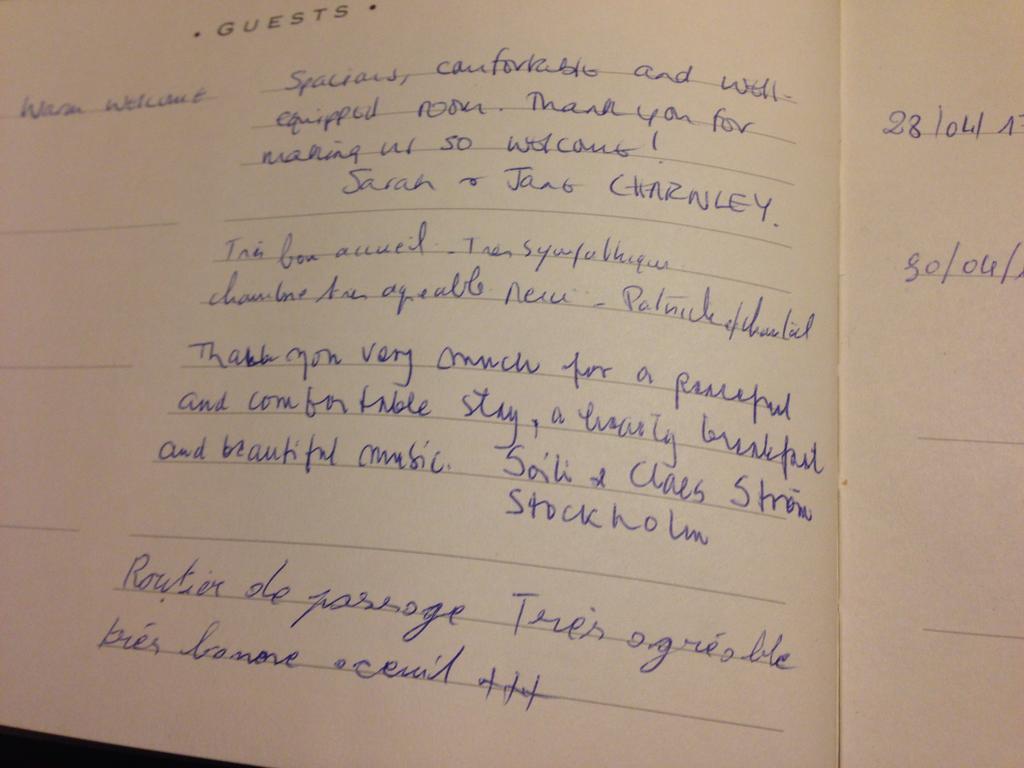 • GUESTS •
Warm welcome
Spacious, comfortable and well-
equipped room. Thank you for
making us so welcome!
Sarah & Jane CHARNLEY.
28/04/17
Très bon accueil - Tres sympathique
chambre tres agreable Merci - Patrick et Chantal
30/04/1
Thank you very much for a peaceful
and comfortable stay, a hearty breakfast
and beautiful music. Soili & Claes Ström
Stockholm
Routier de passage Très agréable
très bonne aceuil +++